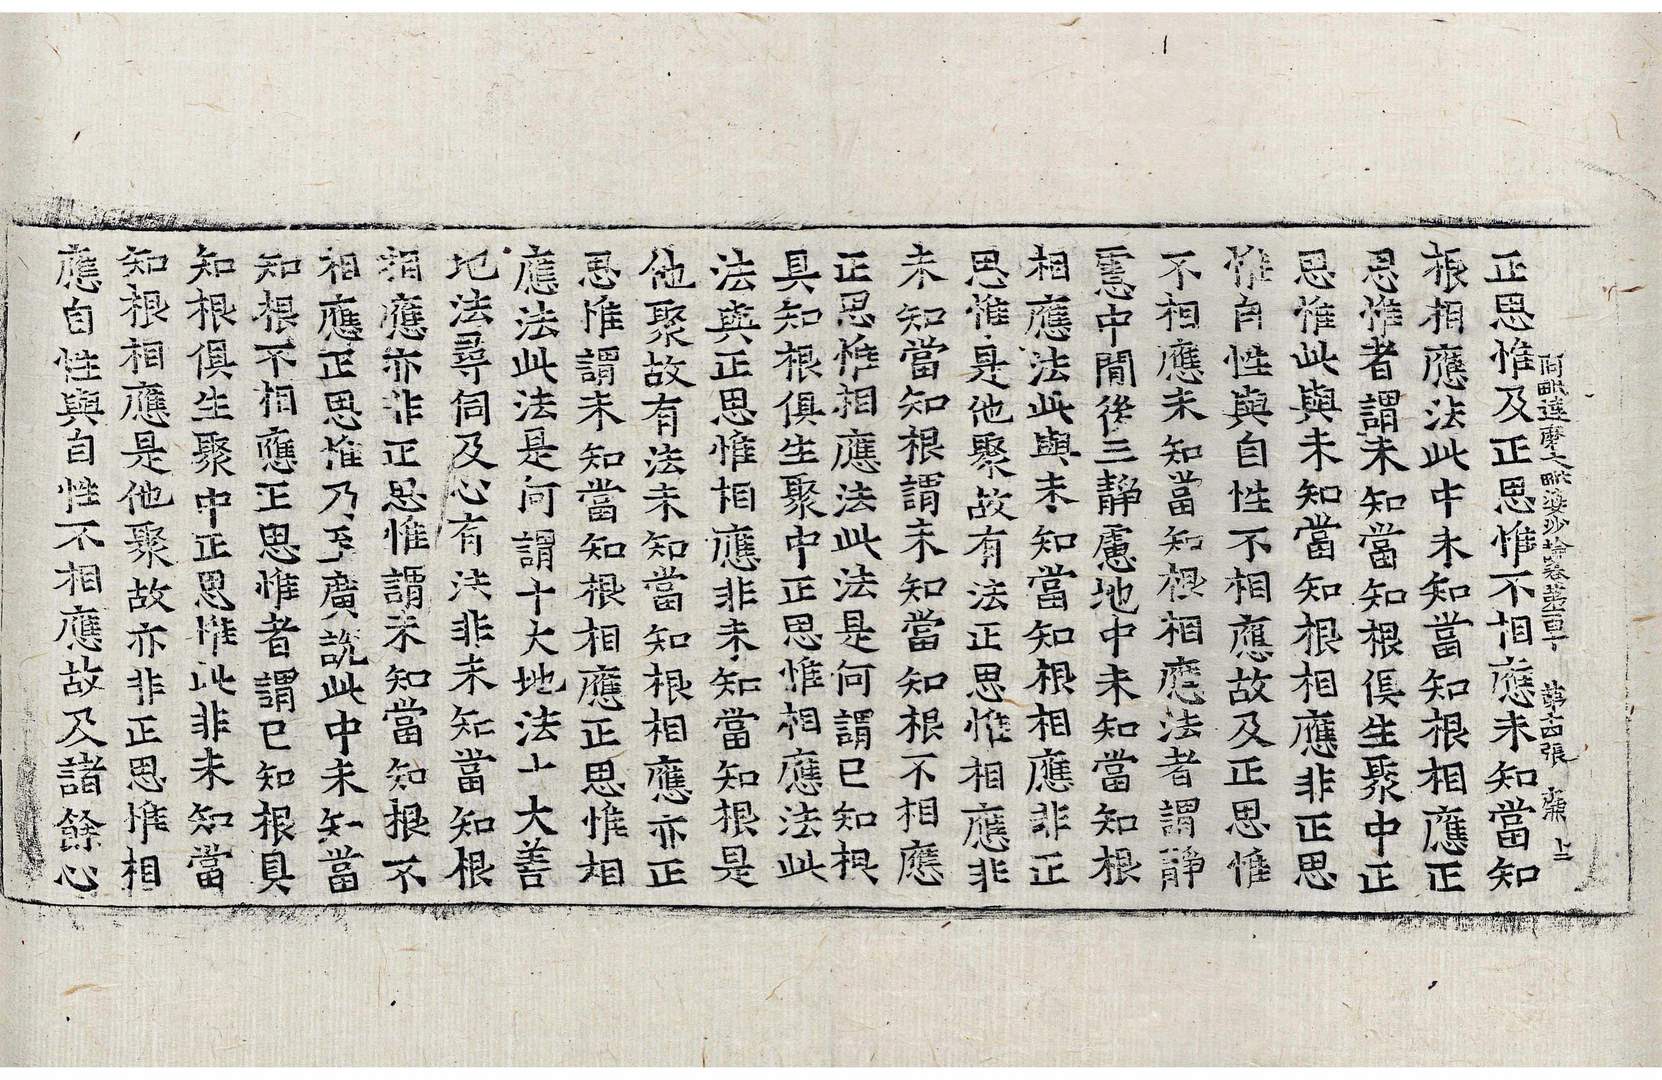 阿毗達磨大毗婆沙論卷第百十　第十四張　鼎　上
正思惟及正思惟不相應未知當知
根相應法此中未知當知根相應正
思惟者謂未知當知根俱生聚中正
思惟此與未知當知根相應非正思
惟自性與自性不相應故及正思惟
不相應未知當知根相應法者謂靜
慮中閒後三靜慮地中未知當知根
相應法此與未知當知根相應非正
思惟是他聚故有法正思惟相應非
未知當知根謂未知當知根不相應
正思惟相應法此法是何謂已知根
具知根俱生聚中正思惟相應法此
法與正思惟相應非未知當知根是
他聚故有法未知當知根相應亦正
思惟謂未知當知根相應正思惟相
應法此法是何謂十大地法十大善
地法尋伺及心有法非未知當知根
相應亦非正思惟謂未知當知根不
相應正思惟乃至廣說此中未知當
知根不相應正思惟者謂已知根具
知根俱生聚中正思惟此非未知當
知根相應是他聚故亦非正思惟相
應自性與自性不相應故及諸餘心